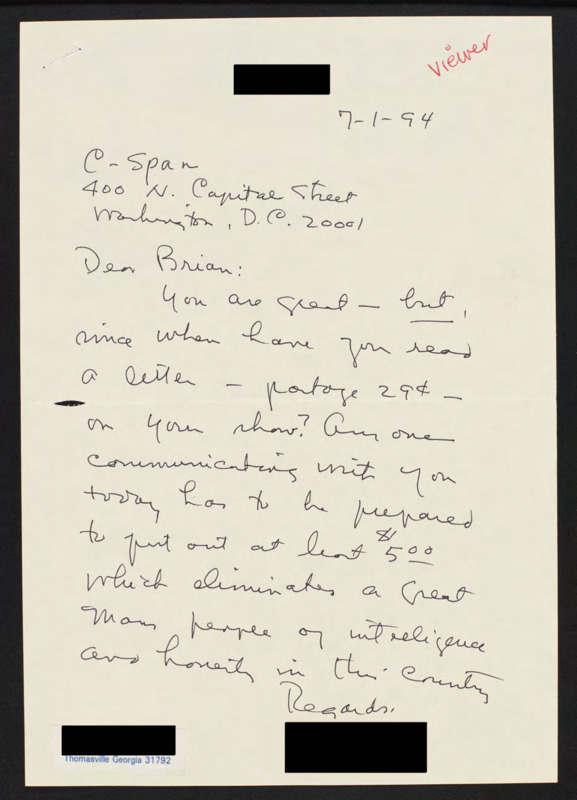 viewer
7-1-94
C-Span
400 N. Capital Street
Washington, D.C. 20001
Dear Brian:
You are great - but,
since when have you read
a letter - postage 29¢ -
on your show? Any one
communicating with you
today has to be prepared
to put out at least $5.00
which eliminates a great
many people of intelligence
and honesty in this country
Regards,
Thomasville Georgia 31792